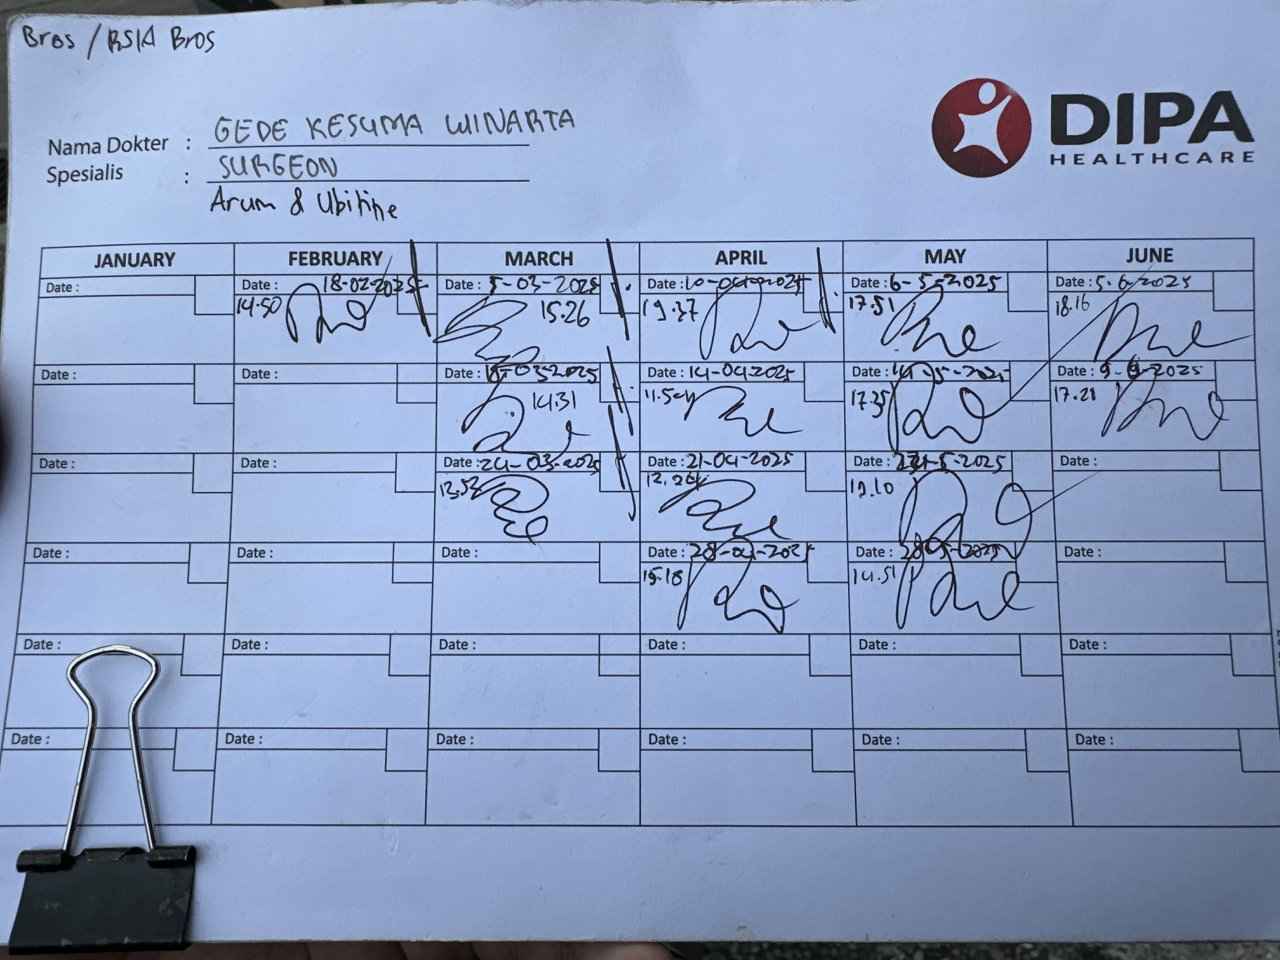 Bros / RSIA Bros
DIPA
HEALTHCARE
Nama Dokter : GEDE KESUMA WINARTA
Spesialis : SURGEON
Arum & Ubitine
JANUARY FEBRUARY MARCH APRIL MAY JUNE
Date : Date : 18-02-2025 Date : 5-03-2025 Date : 10-04-2025 Date : 6-5-2025 Date : 5-6-2025
14.50 15.26 19.37 17.51 18.16
Date : Date : Date : 18-03-2025 Date : 14-04-2025 Date : 14-5-2025 Date : 9-6-2025
14.31 17.35 17.21
Date : Date : Date : 24-03-2025 Date : 21-04-2025 Date : 21-5-2025 Date :
13.52 12.24 19.10
Date : Date : Date : Date : 28-04-2025 Date : 28-5-2025 Date :
15.18 14.51
Date : Date : Date : Date : Date : Date :
Date : Date : Date : Date : Date : Date :